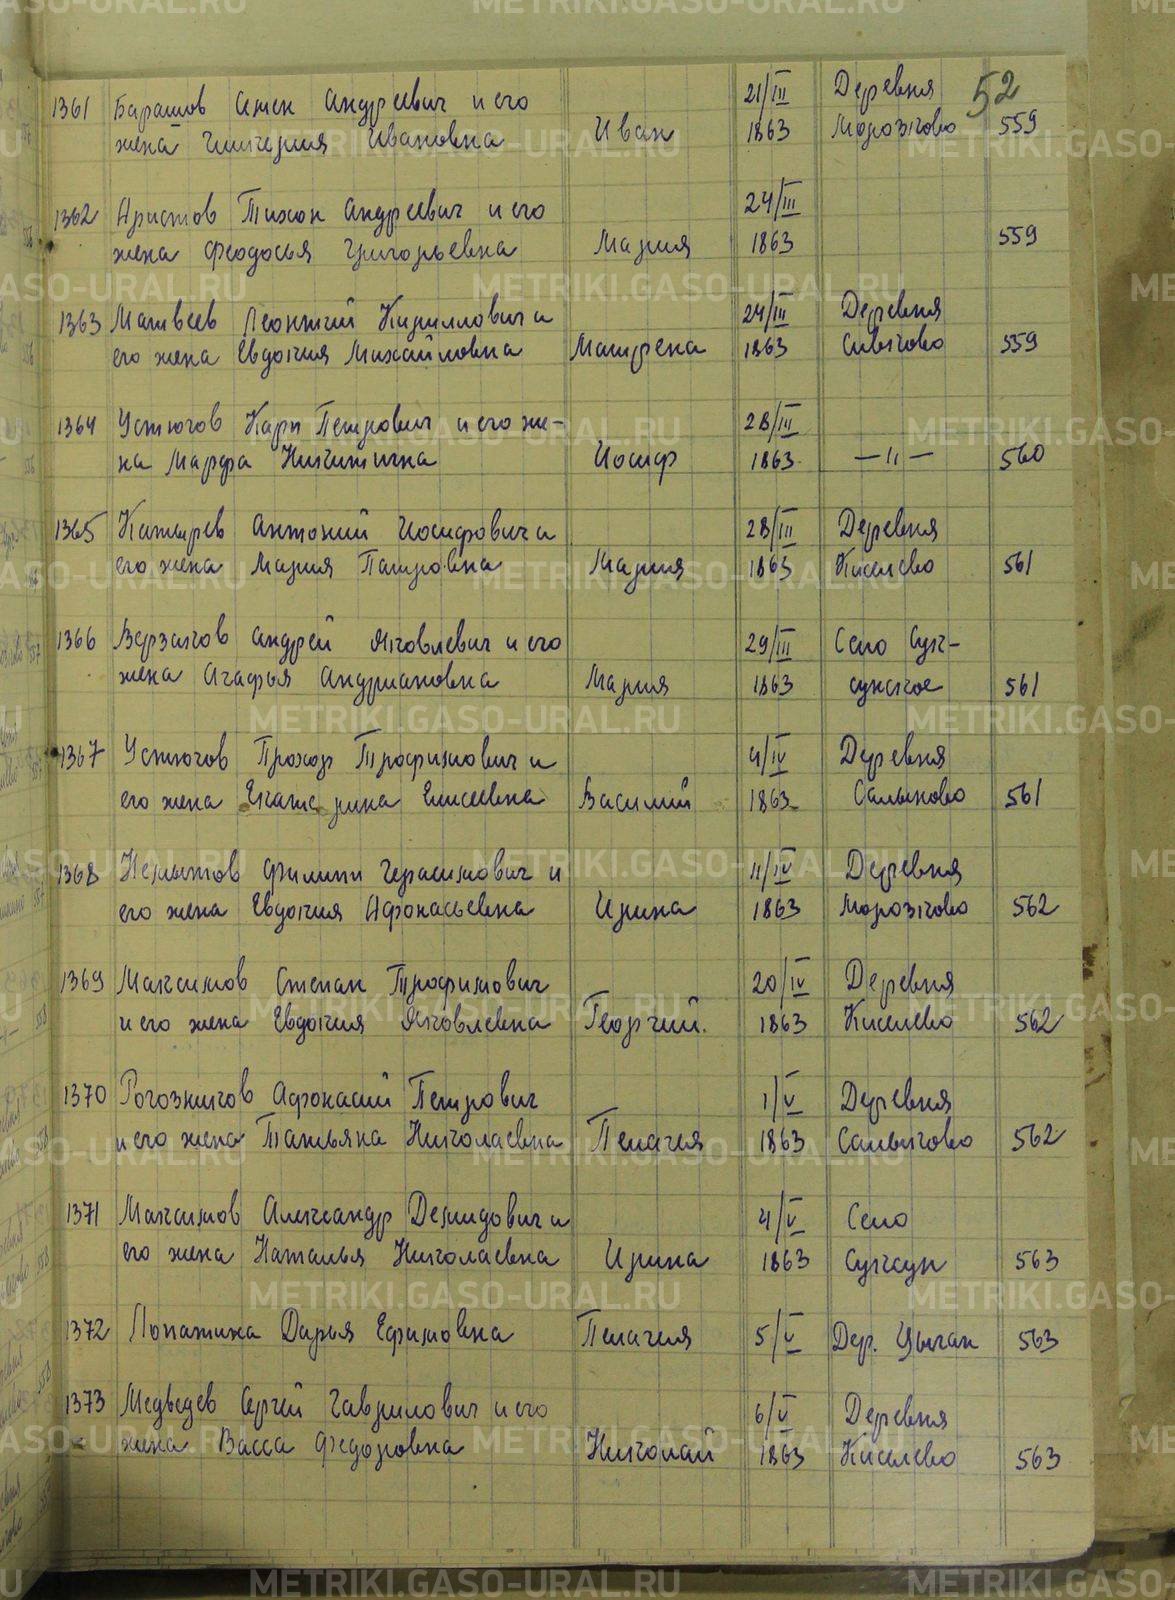 52
1361 Барашов Аксен Андреевич и его 21/III Деревня
жена Гликерия Ивановна Иван 1863 Морозково 559
1362 Аристов Тихон Андреевич и его 24/III
жена Феодосья Григорьевна Мария 1863 559
1363 Матвеев Леонтий Кириллович и 24/III Деревня
его жена Евдокия Михайловна Матрена 1863 559
1364 Устюгов Карп Петрович и его же-  28/III
на Марфа Никитична Иосиф 1863 —"— 560
1365 Антоний Иосифович и 28/III Деревня
его жена Мария Петровна Мария 1863 Киселево 561
1366 Верзаков Андрей Яковлевич и его 29/III Село Сук-
жена Агафья Андриановна Мария 1863 сунское 561
1367 Устюгов Прохор Трофимович и 4/IV Деревня
его жена Екатерина Елисеевна Василий 1863 561
1368 Филипп Герасимович и 11/IV Деревня
его жена Евдокия Афонасьевна Ирина 1863 Морозково 562
1369 Максимов Степан Трофимович 20/IV Деревня
и его жена Евдокия Яковлевна Георгий. 1863 Киселево 562
1370 Рогозников Афонасий Петрович 1/V Деревня
и его жена Татьяна Николаевна Пелагея 1863 562
1371 Максимов Александр Демидович и 4/V Село
его жена Наталья Николаевна Ирина 1863 Суксун 563
1372 Лопатина Дарья Ефимовна Пелагея 5/V Дер. Цыган 563
1373 Медведев Сергей Гаврилович и его 6/V Деревня
жена Васса Федоровна Николай 1863 Киселево 563
METRIKI.GASO-URAL.RU